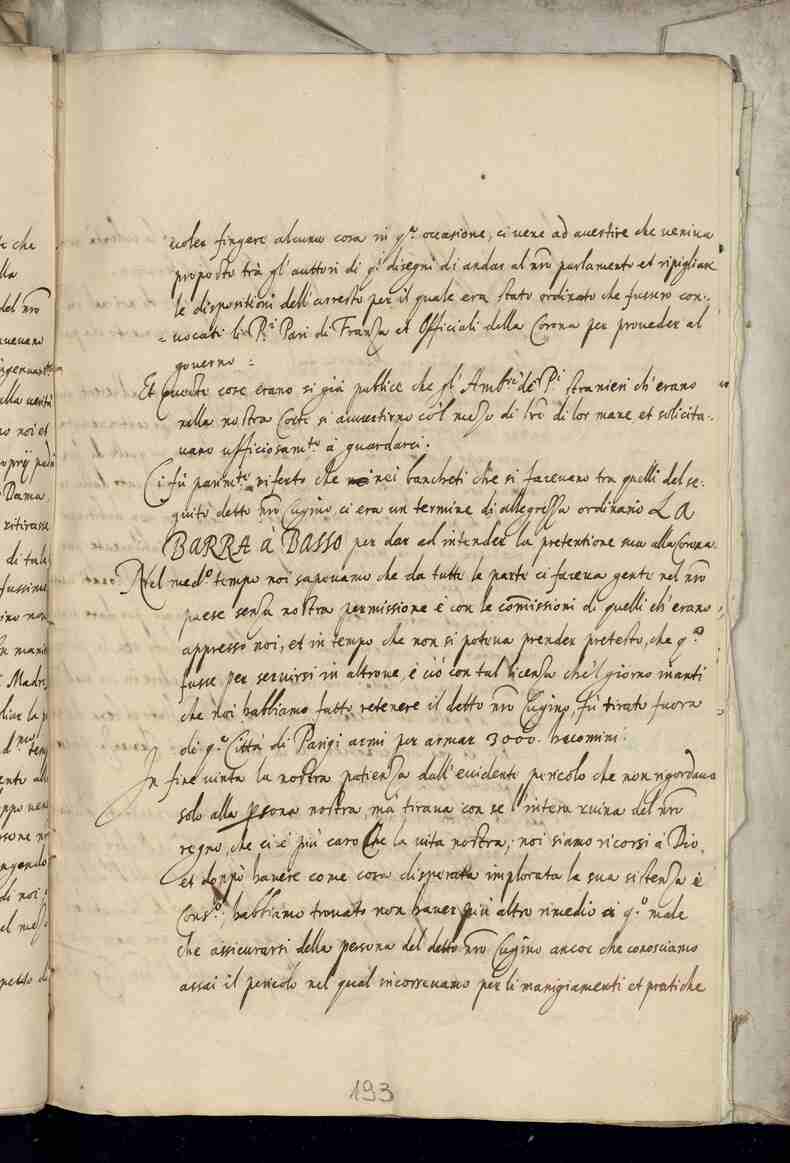 voler fingere alcuna cosa in q.ta occasione, ci vene ad avertire che veniva
proposto trà gl'auttori di q.i disegni di andar al nro parlamento et ripigliare
le dispositioni dell'arresto per il quale era stato ordinato che fussero con-
-vocati li P.ri Pari di Franza et Officiali della Corona per proveder al
governo
Et queste cose erano si già publice che gl'Amb.ri de P.i stranieri ch'erano
nella nostra Corte si avvertirno co'l mezo di lre di lor mane et solicita-
vano ufficiosam.te à guardarci.
Ci fù parim.te riferto che nei bancheti che si facevano tra quelli del se-
guito detto nro Cugino, ci era un termine di allegrezza ordinario LA
BARRA à BASSO per dar ad intender la pretentione sua alla Corona.
Nel med.o tempo noi sapevamo che da tutte le parte ci faceva gente nel nro
paese senza nostra permissione è con le comissioni di quelli ch'erano
appresso noi, et in tempo che non si poteva prender pretesto, che q.o
fusse per servirsi in altrove, è ciò con tal licenza che'l giorno inanti
che noi habbiamo fatto retenere il detto nro Cugino, fù tirato fuora
di q.a Città di Parigi armi per armar 3000. huomini.
In fine vinta la nostra patienza dall'evidente pericolo che non rigordava
solo alla psona nostra, mà tirava con se l'intera ruina del nro
regno, che ci è più caro che la vita nostra, noi siamo ricorsi à Dio,
et doppò havere come cosa disperata implorata la sua sistenza è
Cons.o; habbiamo trovato non haver più altro rimedio a q.o male
che assicurarsi della persona del detto nro Cugino ancor che conosciamo
assai il pericolo nel qual incorrevamo per li manigiamenti et pratiche
193